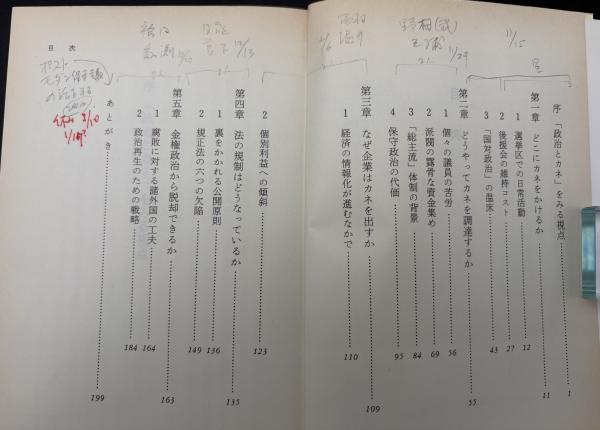 目次
序 「政治とカネ」をみる視点 1
第一章 どこにカネをかけるか 11
1 選挙区での日常活動 12
2 後援会の維持コスト 27
3 「国対政治」の温床 43
第二章 どうやってカネを調達するか 55
1 個々の議員の苦労 56
2 派閥の露骨な資金集め 69
3 「総主流」体制の背景 84
4 保守政治の代価 95
第三章 なぜ企業はカネを出すか 109
1 経済の情報化が進むなかで 110
2 個別利益への傾斜 123
第四章 法の規制はどうなっているか 135
1 裏をかかれる公開原則 136
2 規正法の六つの欠陥 149
第五章 金権政治から脱却できるか 163
1 腐敗に対する諸外国の工夫 164
2 政治再生のための戦略 184
あとがき 199
11/15
11/29
12/13